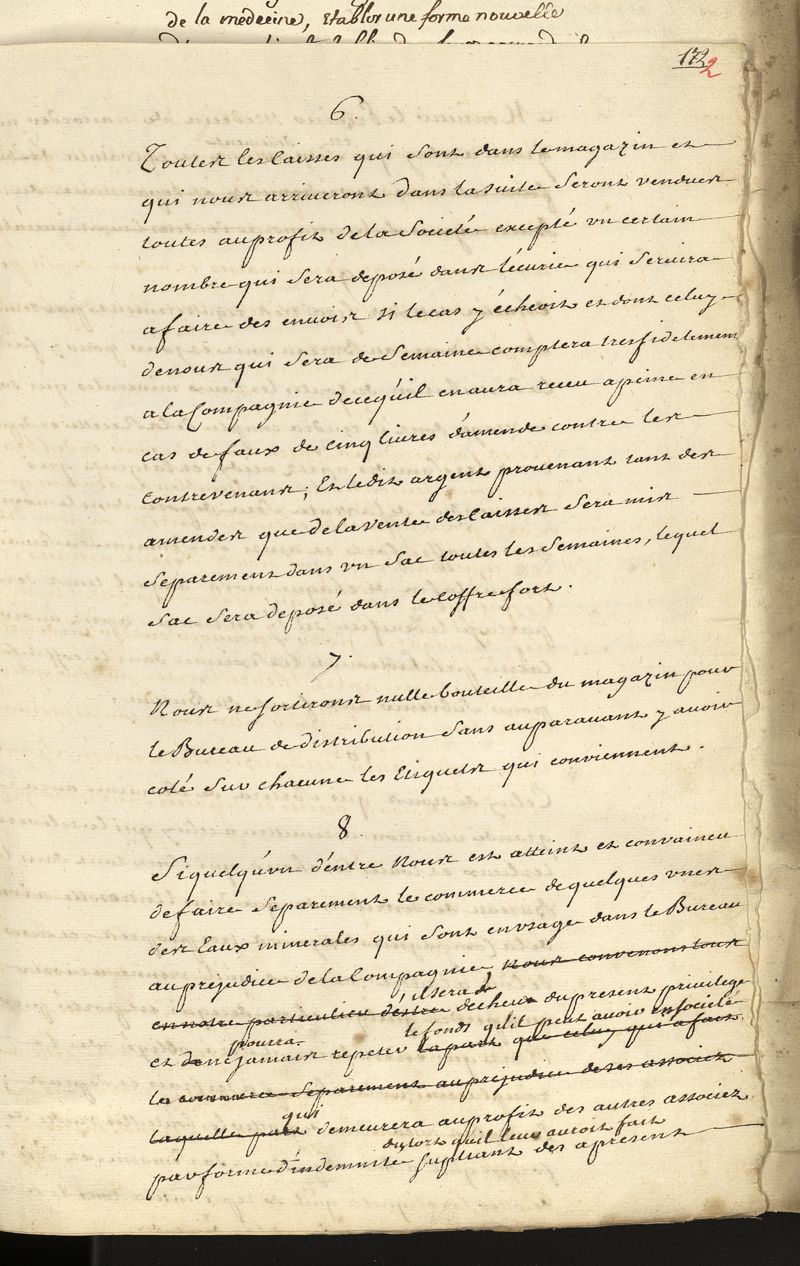 de la medecine, Etablir une forme nouvelle
172
2
6.
Toutes les Caisses qui sont dans le magazin et
qui nous arriveront dans la suite seront vendues
toutes au profit de la Societé excepté un certain
nombre qui sera deposé dans l'écurie qui servira
a faire des envois si le cas y échéoit et dont celuy
de nous qui sera de Semaine comptera tres fidelement
a la Compagnie de ce qu'il en aura receu a peine en
cas de faux de cinq livres d'amende contre les
Contrevenans; Et ledit argent provenant tant des
amendes que de la vente des Caisses sera mis
separement dans un Sac toutes les Semaines, lequel
Sac sera deposé dans le Coffre fort.
7.
Nous ne sortirons nulle bouteille du magazin pour
le Bureau de distribution sans auparavant y avoir
coté sur chacune les Etiquets qui conviennent.
8.
Si quelqu'un d'entre Nous est atteint et convaincu
de faire separement le commerce de quelques unes
des Eaux minerales qui sont en usage dans le Bureau
au prejudice de la Compagnie nous convenons tous
il sera
en notre particulier d'estre decheu du present privilege
pourra le fonds qu'il peut avoir en societé
et de ne jamais repeter la part que celuy qui a fait
le commerce separement au prejudice de ses associez
qui
laquelle part demeurera au profit des autres associez
du tort qu'il leur auroit fait
par forme d'indemnité suptiant des apresent